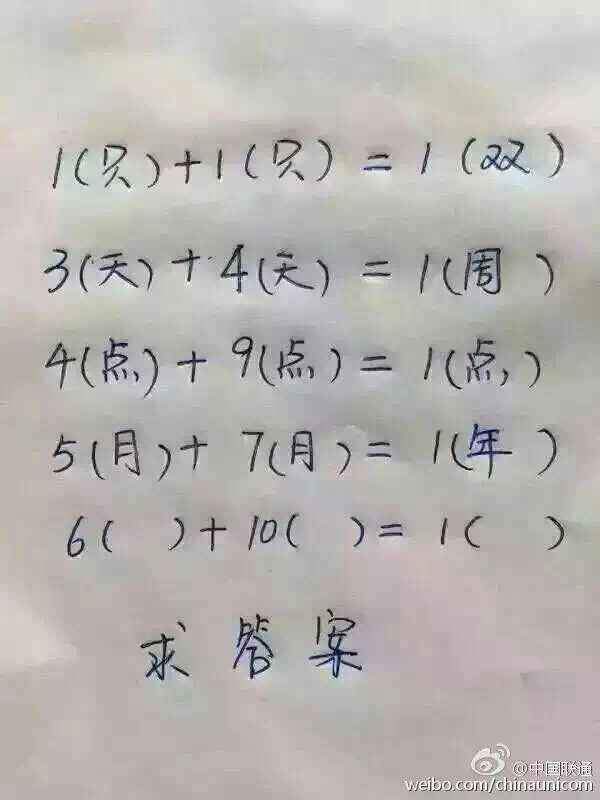 1(只)+1(只)=1(双)
3(天)+4(天)=1(周)
4(点)+9(点)=1(点)
5(月)+7(月)=1(年)
6( )+10( )=1( )
求答案
@中国联通
weibo.com/chinaunicom